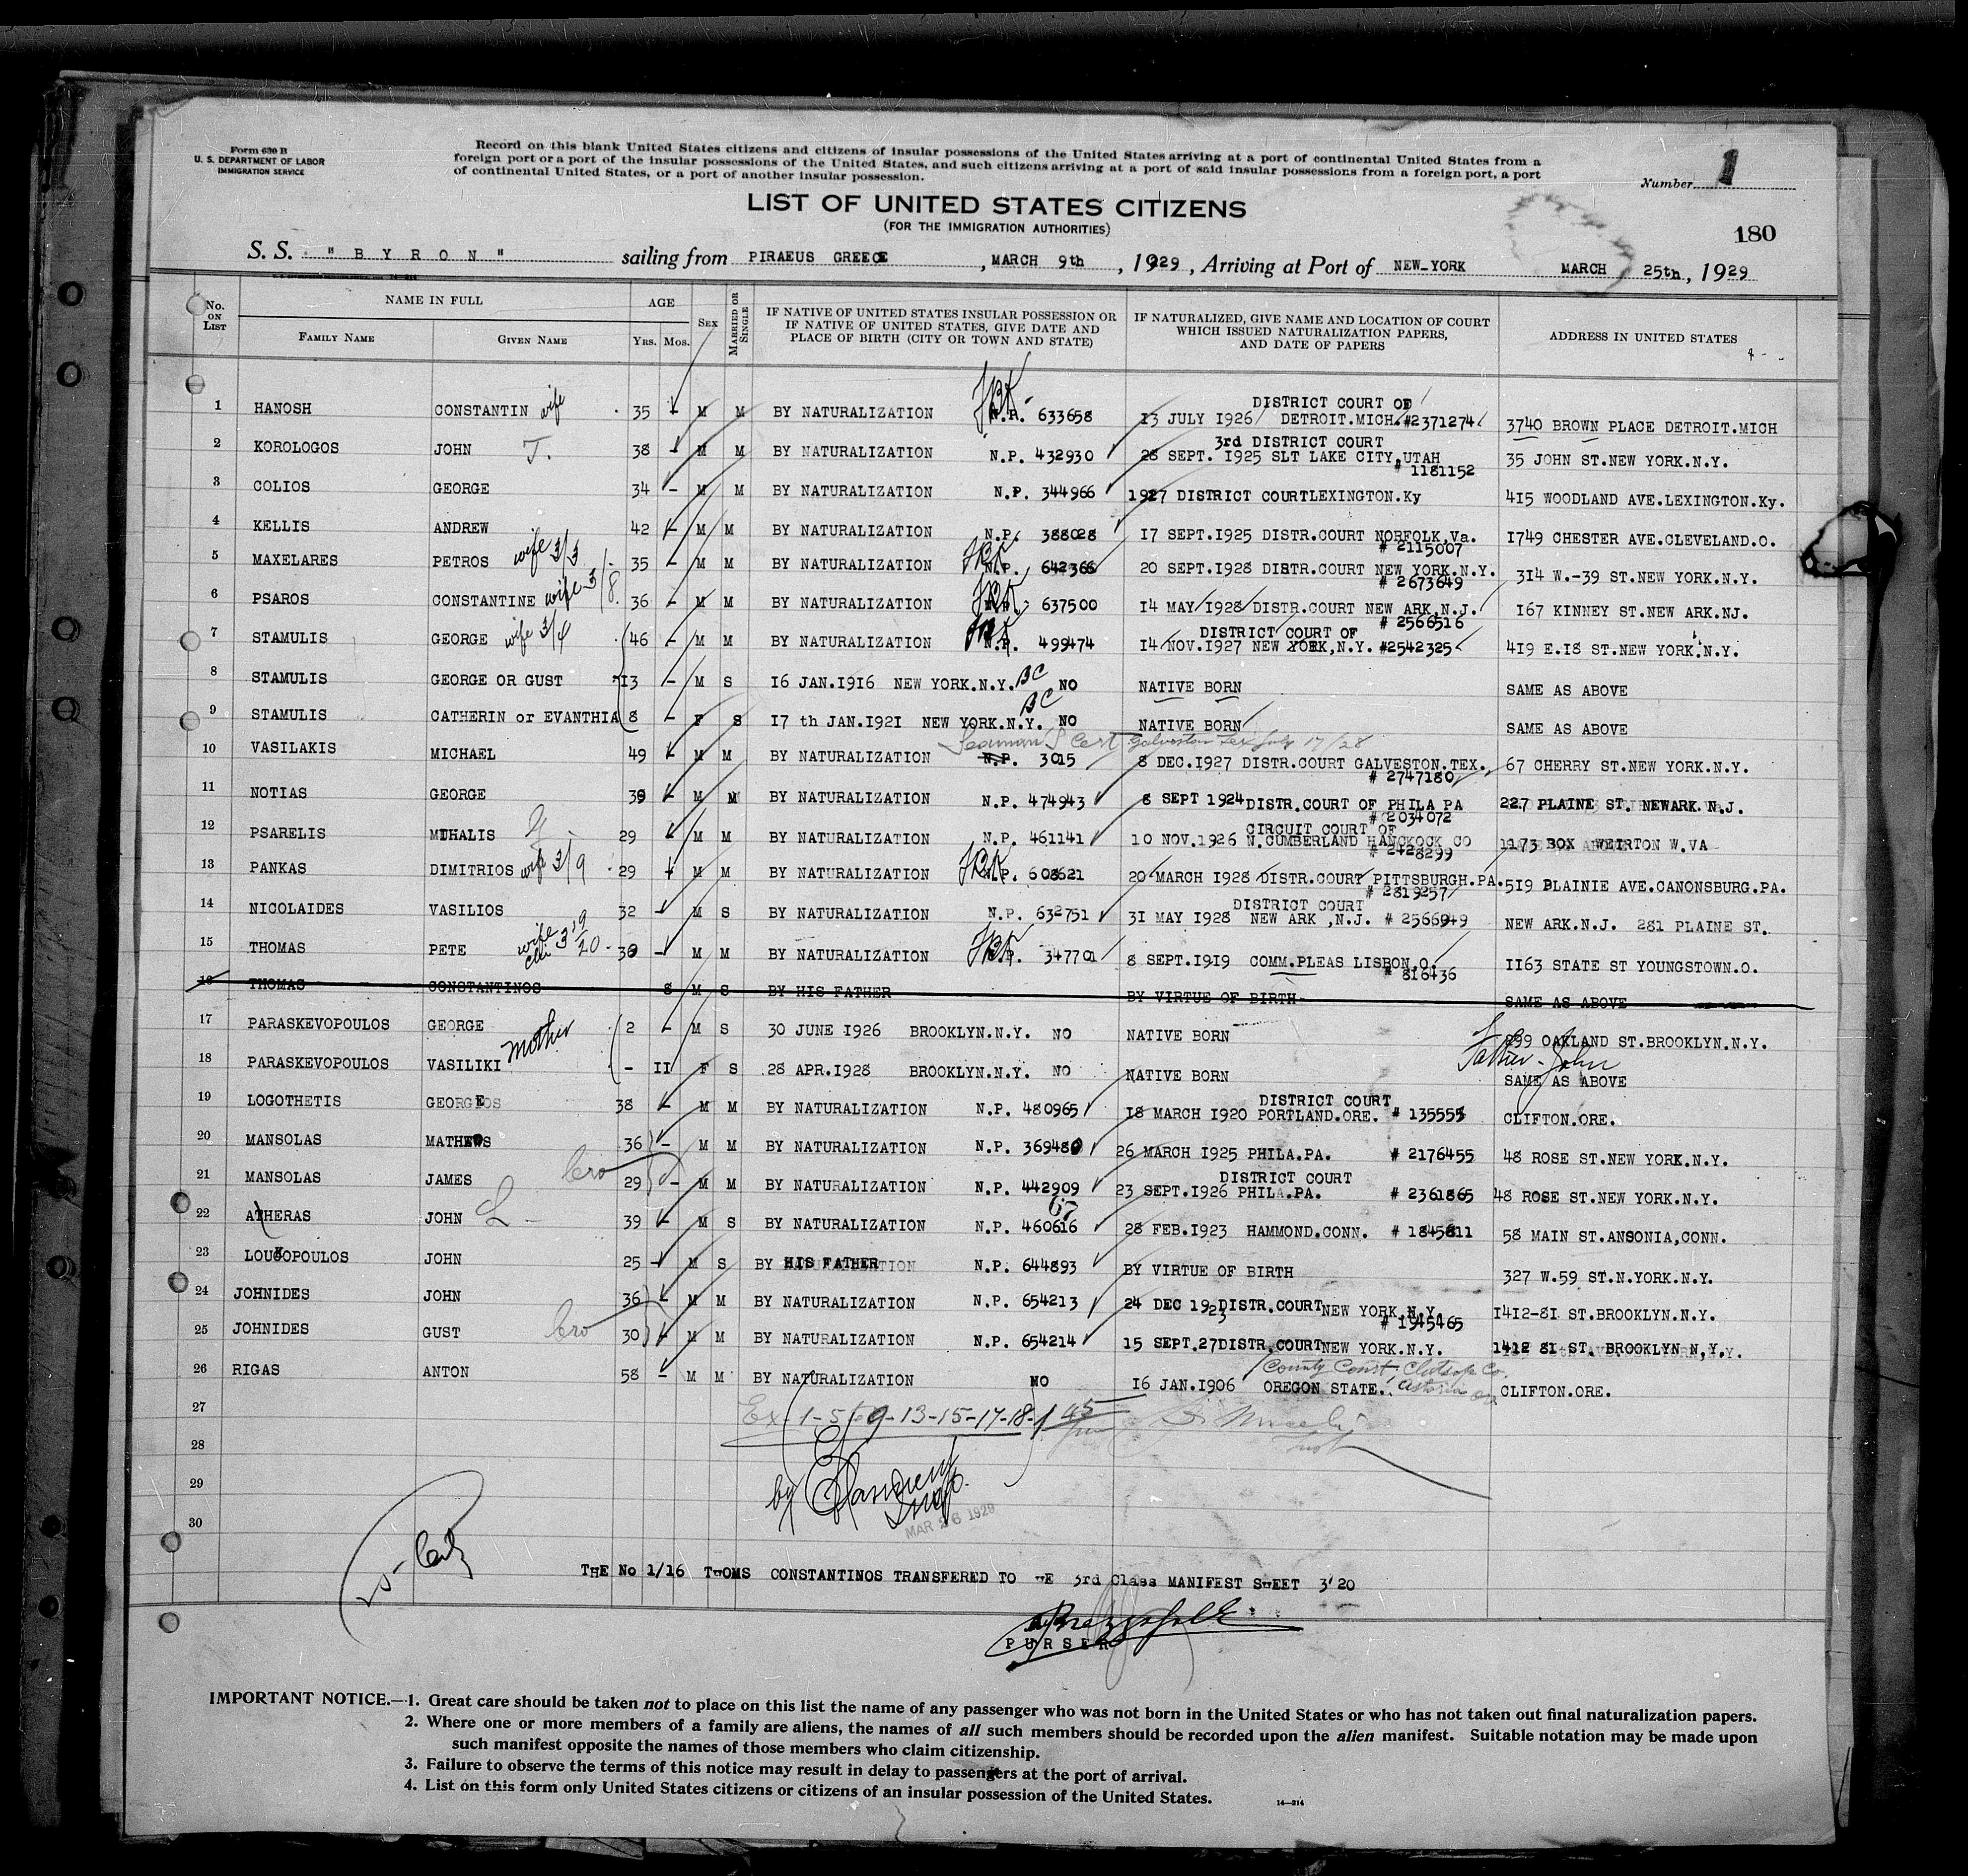 Form 630 B
U. S. DEPARTMENT OF LABOR
IMMIGRATION SERVICE
Record on this blank United States citizens and citizens of insular possessions of the United States arriving at a port of continental United States from a
foreign port or a port of the insular possessions of the United States, and such citizens arriving at a port of said insular possessions from a foreign port, a port
of continental United States, or a port of another insular possession.
Number 1
LIST OF UNITED STATES CITIZENS
(FOR THE IMMIGRATION AUTHORITIES)
180
S. S. "BYRON" sailing from PIRAEUS GREECE, MARCH 9th, 1929, Arriving at Port of NEW-YORK MARCH 25th, 1929
No. ON LIST NAME IN FULL FAMILY NAME GIVEN NAME AGE YRS. MOS. SEX MARRIED OR SINGLE IF NATIVE OF UNITED STATES INSULAR POSSESSION OR IF NATIVE OF UNITED STATES, GIVE DATE AND PLACE OF BIRTH (CITY OR TOWN AND STATE) IF NATURALIZED, GIVE NAME AND LOCATION OF COURT WHICH ISSUED NATURALIZATION PAPERS, AND DATE OF PAPERS ADDRESS IN UNITED STATES
1 HANOSH CONSTANTIN wife 35 - M M BY NATURALIZATION N.P. 633658 13 JULY 1926 DISTRICT COURT OF DETROIT.MICH.#2371274 3740 BROWN PLACE DETROIT.MICH
2 KOROLOGOS JOHN T. 38 - M M BY NATURALIZATION N.P. 432930 3rd DISTRICT COURT 28 SEPT. 1925 SLT LAKE CITY,UTAH # 1181152 35 JOHN ST.NEW YORK.N.Y.
3 COLIOS GEORGE 34 - M M BY NATURALIZATION N.P. 344966 1927 DISTRICT COURTLEXINGTON.Ky 415 WOODLAND AVE.LEXINGTON.Ky.
4 KELLIS ANDREW 42 - M M BY NATURALIZATION N.P. 388028 17 SEPT.1925 DISTR.COURT NORFOLK,Va. # 2115007 1749 CHESTER AVE.CLEVELAND.O.
5 MAXELARES PETROS wife 3/3 35 - M M BY NATURALIZATION N.P. 642366 20 SEPT.1928 DISTR.COURT NEW YORK.N.Y. # 2673649 314 W.-39 ST.NEW YORK.N.Y.
6 PSAROS CONSTANTINE wife 3/8. 36 - M M BY NATURALIZATION N.P. 637500 14 MAY 1928 DISTR.COURT NEW ARK,N.J. # 2566516 167 KINNEY ST.NEW ARK.NJ.
7 STAMULIS GEORGE wife 3/4 46 - M M BY NATURALIZATION N.P. 499474 DISTRICT COURT OF 14 NOV.1927 NEW YORK,N.Y. #2542325 419 E.18 ST.NEW YORK.N.Y.
8 STAMULIS GEORGE OR GUST 13 - M S 16 JAN.1916 NEW YORK.N.Y. BC NO NATIVE BORN SAME AS ABOVE
9 STAMULIS CATHERIN or EVANTHIA 8 - F S 17 th JAN.1921 NEW YORK.N.Y. BC NO NATIVE BORN SAME AS ABOVE
10 VASILAKIS MICHAEL 49 - M M BY NATURALIZATION Seaman's Cert Galveston Tex July 17/28 N.P. 3015 8 DEC.1927 DISTR.COURT GALVESTON.TEX. # 2747180 67 CHERRY ST.NEW YORK.N.Y.
11 NOTIAS GEORGE 39 - M M BY NATURALIZATION N.P. 474943 8 SEPT 1924 DISTR.COURT OF PHILA PA # 2034072 227 PLAINE ST. NEWARK.N.J.
12 PSARELIS MIHALIS 29 M M BY NATURALIZATION N.P. 461141 10 NOV.1926 CIRCUIT COURT OF N.CUMBERLAND HANCKOCK CO # 2428299 1173 BOX WEIRTON W.VA
13 PANKAS DIMITRIOS wife 3/9 29 - M M BY NATURALIZATION N.P. 608621 20 MARCH 1928 DISTR.COURT PITTSBURGH.PA. # 2819257 519 BLAINIE AVE.CANONSBURG.PA.
14 NICOLAIDES VASILIOS 32 - M S BY NATURALIZATION N.P. 632751 DISTRICT COURT 31 MAY 1928 NEW ARK ,N.J. # 2566949 NEW ARK.N.J. 281 PLAINE ST.
15 THOMAS PETE wife 3/9 20 - 30 - M M BY NATURALIZATION N.P. 347701 8 SEPT.1919 COMM.PLEAS LISBON,O. # 816436 1163 STATE ST YOUNGSTOWN.O.
16 THOMAS CONSTANTINOS 8 M S BY HIS FATHER BY VIRTUE OF BIRTH SAME AS ABOVE
17 PARASKEVOPOULOS GEORGE 2 - M S 30 JUNE 1926 BROOKLYN.N.Y. NO NATIVE BORN 299 OAKLAND ST.BROOKLYN.N.Y.
18 PARASKEVOPOULOS VASILIKI mother - 11 F S 28 APR.1928 BROOKLYN.N.Y. NO NATIVE BORN Father - John SAME AS ABOVE
19 LOGOTHETIS GEORGEOS 38 - M M BY NATURALIZATION N.P. 480965 DISTRICT COURT 18 MARCH 1920 PORTLAND.ORE. # 135555 CLIFTON.ORE.
20 MANSOLAS MATHEWS 36 - M M BY NATURALIZATION N.P. 369480 26 MARCH 1925 PHILA.PA. # 2176455 48 ROSE ST.NEW YORK.N.Y.
21 MANSOLAS JAMES bro 29 - M M BY NATURALIZATION N.P. 442909 DISTRICT COURT 23 SEPT.1926 PHILA.PA. # 2361865 48 ROSE ST.NEW YORK.N.Y.
22 ATHERAS JOHN L - 39 - M S BY NATURALIZATION N.P. 460616 67 28 FEB.1923 HAMMOND.CONN. # 1845811 58 MAIN ST.ANSONIA,CONN.
23 LOUZOPOULOS JOHN 25 - M S BY HIS FATHER N.P. 644893 BY VIRTUE OF BIRTH 327 W.59 ST.N.YORK.N.Y.
24 JOHNIDES JOHN 36 - M M BY NATURALIZATION N.P. 654213 24 DEC 1923 DISTR.COURT NEW YORK.N.Y. # 1945465 1412-81 ST.BROOKLYN.N.Y.
25 JOHNIDES GUST bro 30 - M M BY NATURALIZATION N.P. 654214 15 SEPT.27 DISTR.COURT NEW YORK.N.Y. 1412 81 ST. BROOKLYN N,Y.
26 RIGAS ANTON 58 - M M BY NATURALIZATION NO 16 JAN.1906 OREGON STATE. County Court, Clatsop Co. Astoria Or CLIFTON.ORE.
27 Ex 1-5 to 9-13-15-17-18-
28
29 by Insp.
30 MAR 26 1929
THE No 1/16 THOMS CONSTANTINOS TRANSFERED TO HE 3rd Class MANIFEST SHEET 3'20
PURSER
IMPORTANT NOTICE.—1. Great care should be taken not to place on this list the name of any passenger who was not born in the United States or who has not taken out final naturalization papers.
2. Where one or more members of a family are aliens, the names of all such members should be recorded upon the alien manifest. Suitable notation may be made upon
such manifest opposite the names of those members who claim citizenship.
3. Failure to observe the terms of this notice may result in delay to passengers at the port of arrival.
4. List on this form only United States citizens or citizens of an insular possession of the United States.
14—214